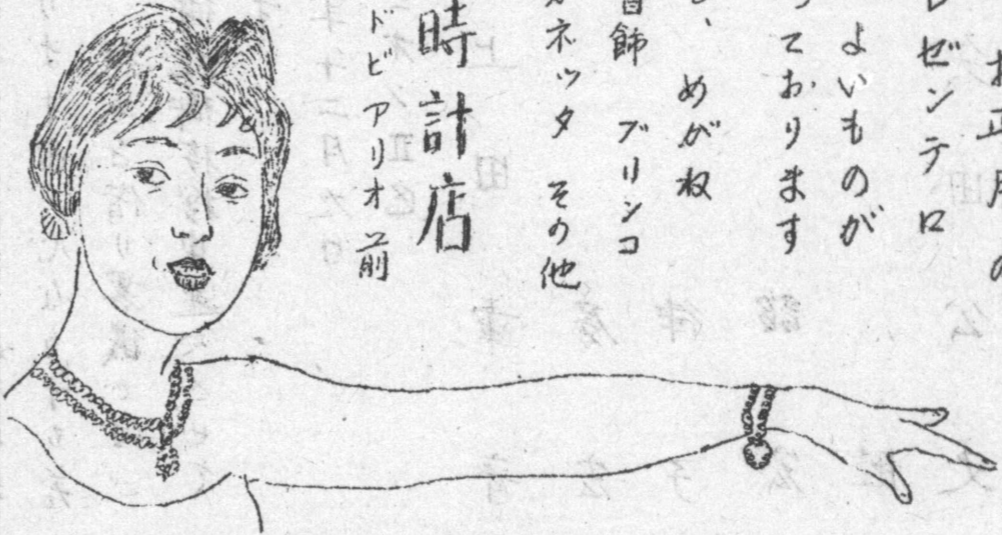 お正月の
レゼンテロ
よいものが
っております
、めがね
首飾 ブリンコ
ネッタ その他
時計店
ドビアリオ前